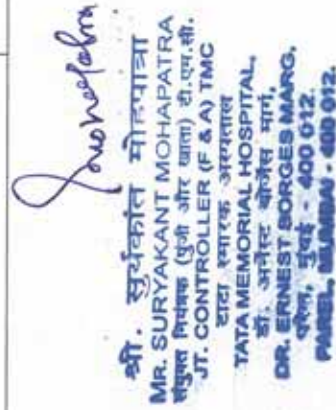 श्री. सुर्यकांत मोहपात्रा
MR. SURYAKANT MOHAPATRA
संयुक्त नियंत्रक (पुंजी और खाता) टी.एम.सी.
JT. CONTROLLER (F & A) TMC
टाटा स्मारक अस्पताल
TATA MEMORIAL HOSPITAL,
डॉ. अर्नेस्ट बोर्जेस मार्ग,
DR. ERNEST BORGES MARG,
परेल, मुंबई - 400 012
PAREL, MUMBAI - 400 012.